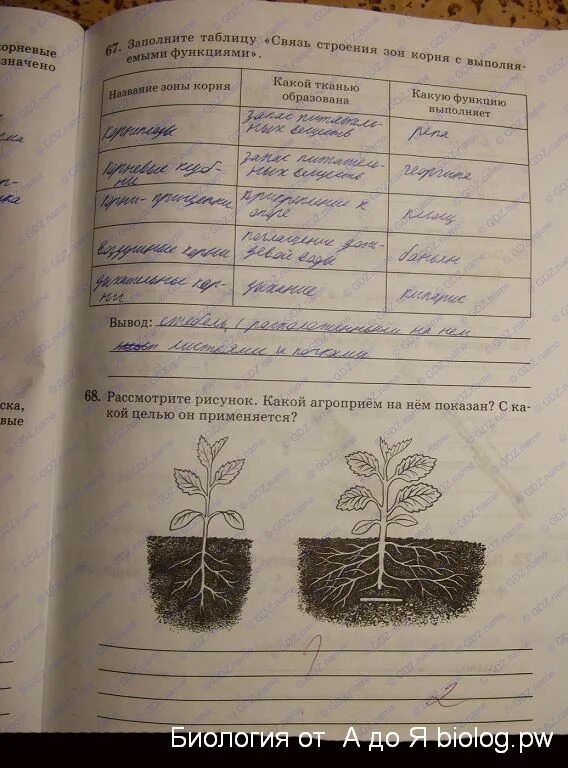 орневые
значено
67. Заполните таблицу «Связь строения зон корня с выполня-
емыми функциями».
Название зоны корня
Какой тканью
образована
Какую функцию
выполняет
корнеплоды
запас питатель-
ных веществ
репа
корневые клуб-
ни
запас питатель-
ных веществ
георгина
корни-прицепки
прикрепление к
опоре
плющ
воздушные корни
поглощение дож-
девой воды
баньян
дыхательные кор-
ни
дыхание
кипарис
Вывод: стебель с расположенными на нем
листьями и почками
68. Рассмотрите рисунок. Какой агроприём на нём показан? С ка-
кой целью он применяется?
ска,
вые
2
© GDZ.name
Биология от А до Я biolog.pw